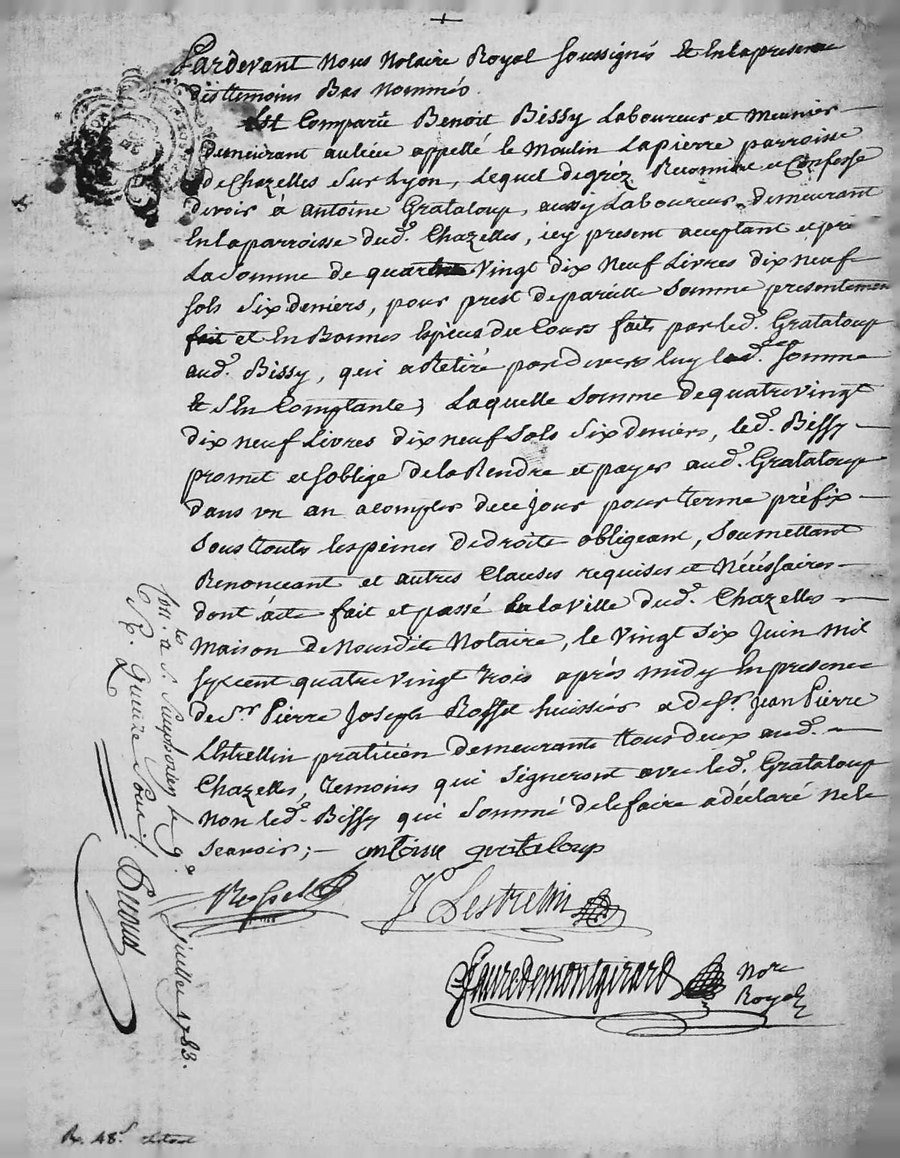 Pardevant Nous Notaire Royal soussignés Et En la presence
des temoins Bas Nommés
Est Comparû Benoit Bissy Laboureur et Meunier
demeurant au lieu appellé le Moulin Lapierre parroisse
de Chazelles sur Lyon, Lequel de gréz Reconnue et Confesse
devoir à antoine Grataloup, aussy Laboureur demeurant
En la parroisse dud. Chazelles, icy present aceptant et pre
La Somme de quatre Vingt dix Neuf Livres dix neuf
sols Six deniers, pour prest de pareille Somme presentement
fait et En Bonnes Espèces du Cours faits par led. Grataloup
aud. Bissy, qui a Retiré pardevers luy lad. Somme
& s'En Comptante; Laquelle Somme de quatre vingt
dix neuf Livres dix neuf Sols Six deniers, led. Bissy
promet et soblige de la Rendre et payer aud. Grataloup
dans un an a compter de ce jour pour terme préfix
Sous touts les peines de droits obligeant, Soumettant
Renonceant et autres Clauses requises et Nécéssaires
dont acte fait et passé En la Ville dud. Chazelles
Maison de Nousdit Notaire, le Vingt Six Juin Mil
sept cent quatre vingt trois après midy En presence
de Sr. Pierre Joseph Rossel huissier & de Sr. Jean Pierre
Lestrellin praticien demeurants tous deux aud.
Chazelles, Temoins qui Signeront avec led. Grataloup
Non led. Bissy qui Sommé de le faire a déclaré ne le
Scavoir;
antoine grataloup
Rossel
JP Lestrellin
Fauredemontgirard
Nore
Royal
Con. les
a St. Simphorien le 9e juillet 1783.
R. quinze Sous